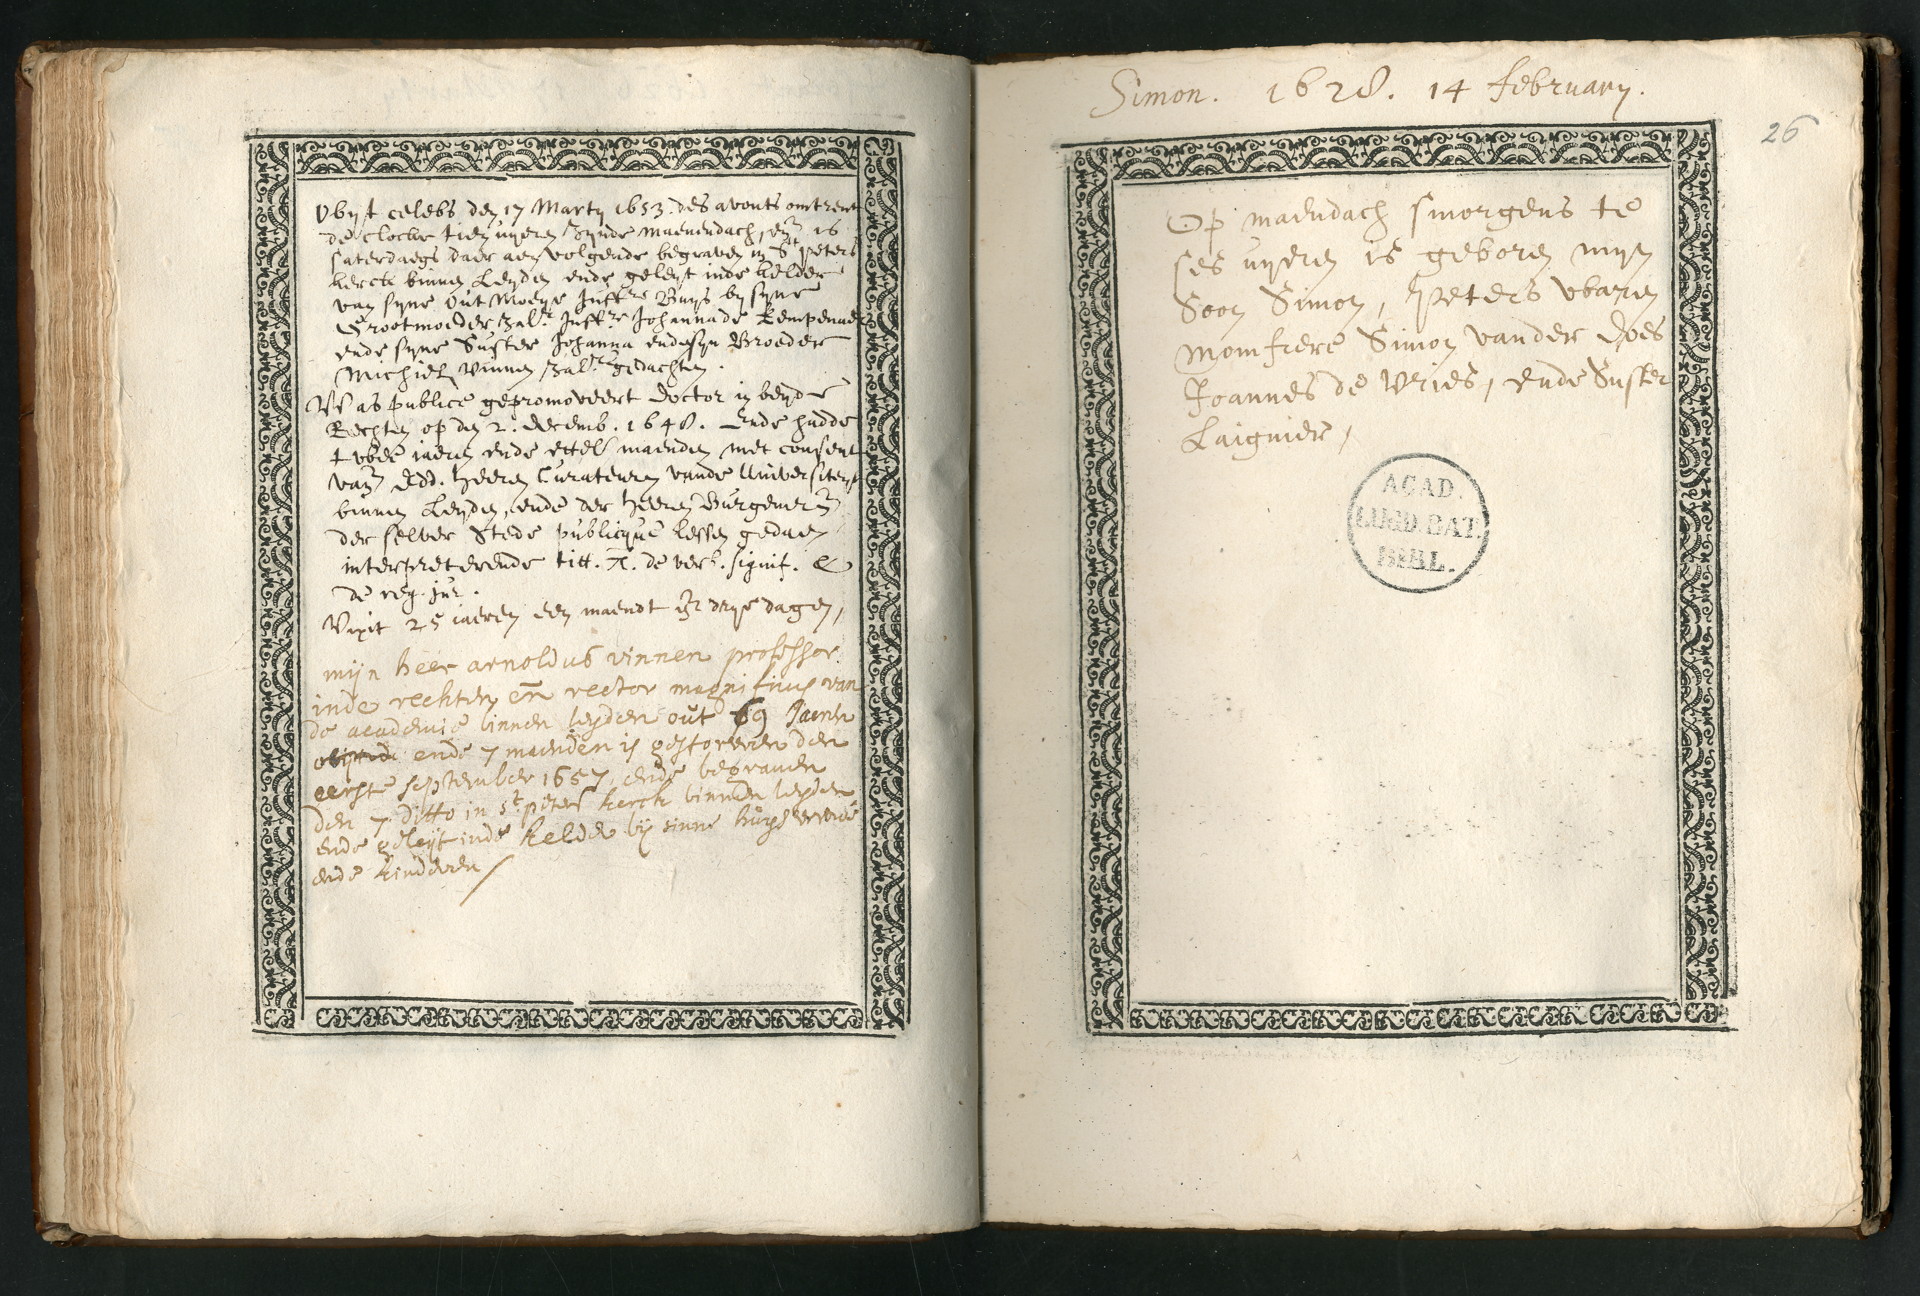 Obyt celebs den 17 Marty 1653. des avonts omtrent
de clocke tien uyren zynde maenendach, en is
saterdaegs daer aen volgende begraven in St Peters
kerck binnen Leyden ende geleyt inde kelder
van syne out Moeye Juffre Buys by syne
Grootmoeder zalr Juffre Johanna de Kempenaer
ende syne Suster Johanna ende syn Broeder
Michiel Vinnen zalr gedachten.
Was publice gepromoveert doctor in beyde
Rechten op den 2. decemb. 1648. Ende hadde
twee iaeren ende ettel maenden met consent
van Edd. heeren Curateuren vande Universiteyt
binnen Leyden, ende der heeren Burgemern
der selver Stede publicque lessen gedaen
interpreterende titt. π. de verb. signif. &
de reg. jur.
Vixit 25 iaeren een maendt en drye dagen,
mijn heer arnoldus vinnen professor
inde rechten en rector magnificus van
de academie binnen leyden out 69 Jaeren
ende 7 maenden is gestorven den
eerste september 1657, ende begraven
den 7 ditto in St peters kerck binnen leyden
ende geleijt inde kelder bij sinne huijsvrouwe
ende kinderen
Simon. 1628. 14 february.
26
Op maendach smorgens te
ses uyren is geboren myn
Soon Simon, peters waren
monfrere Simon vander Does
Joannes de Vries, ende Suster
Laignier,
ACAD.
LUGD. BAT.
BIBL.